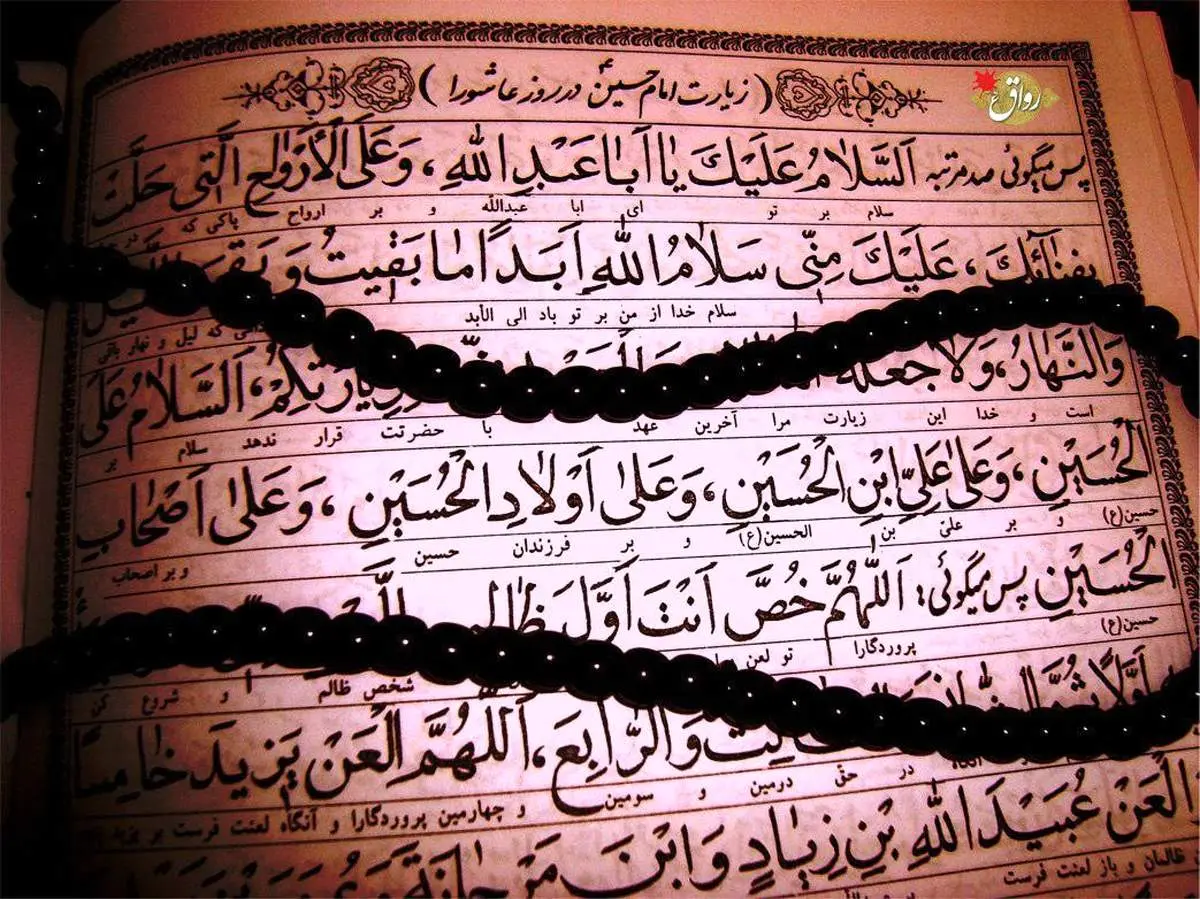 (زیارت امام حسینؑ در روز عاشورا)
رواق ع
پس میگوئی صد مرتبه اَلسَّلامُ عَلَیْكَ یا اَباعَبْدِ اللهِ، وَعَلَی الْاَرْواحِ الَّتی حَلَّتْ
سلام بر تو ای ابا عبدالله و بر ارواح پاکی که در
بِفِنآئِكَ، عَلَیْكَ مِنّی سَلامُ اللهِ اَبَداً ما بَقیتُ وَ بَقِیَ
سلام خدا از من بر تو باد الی الأبد که لیل و نهار باقی
وَالنَّهارُ، وَلا جَعَلَهُ لِزِیارَتِکُمْ، اَلسَّلامُ عَلَی
است و خدا این زیارت مرا آخرین عهد با حضرتت قرار ندهد سلام بر
الْحُسَیْنِ، وَعَلی عَلِیِّ ابْنِ الْحُسَیْنِ، وَعَلی اَوْلادِ الْحُسَیْنِ، وَعَلی اَصْحابِ
حسین(ع) و بر علیّ بن الحسین(ع) و بر فرزندان حسین و بر اصحاب
الْحُسَیْنِ پس میگوئی: اَللّهُمَّ خُصَّ اَنْتَ اَوَّلَ ظالِمٍ
حسین(ع) پروردگارا تو لعن شخص ظالم و شروع کن
اَوَّلاً ثُمَّ
وَالرّابِعَ، اَللّهُمَّ الْعَنْ یَزیدَ خامِساً
در حقّ دومین و سومین و چهارمین پروردگارا و آنگاه لعنت فرست بر یزید
الْعَنْ عُبَیْدَ اللهِ بْنَ زِیادٍ وَ ابْنَ مَرْجانَةَ
ظالمان و باز لعنت فرست